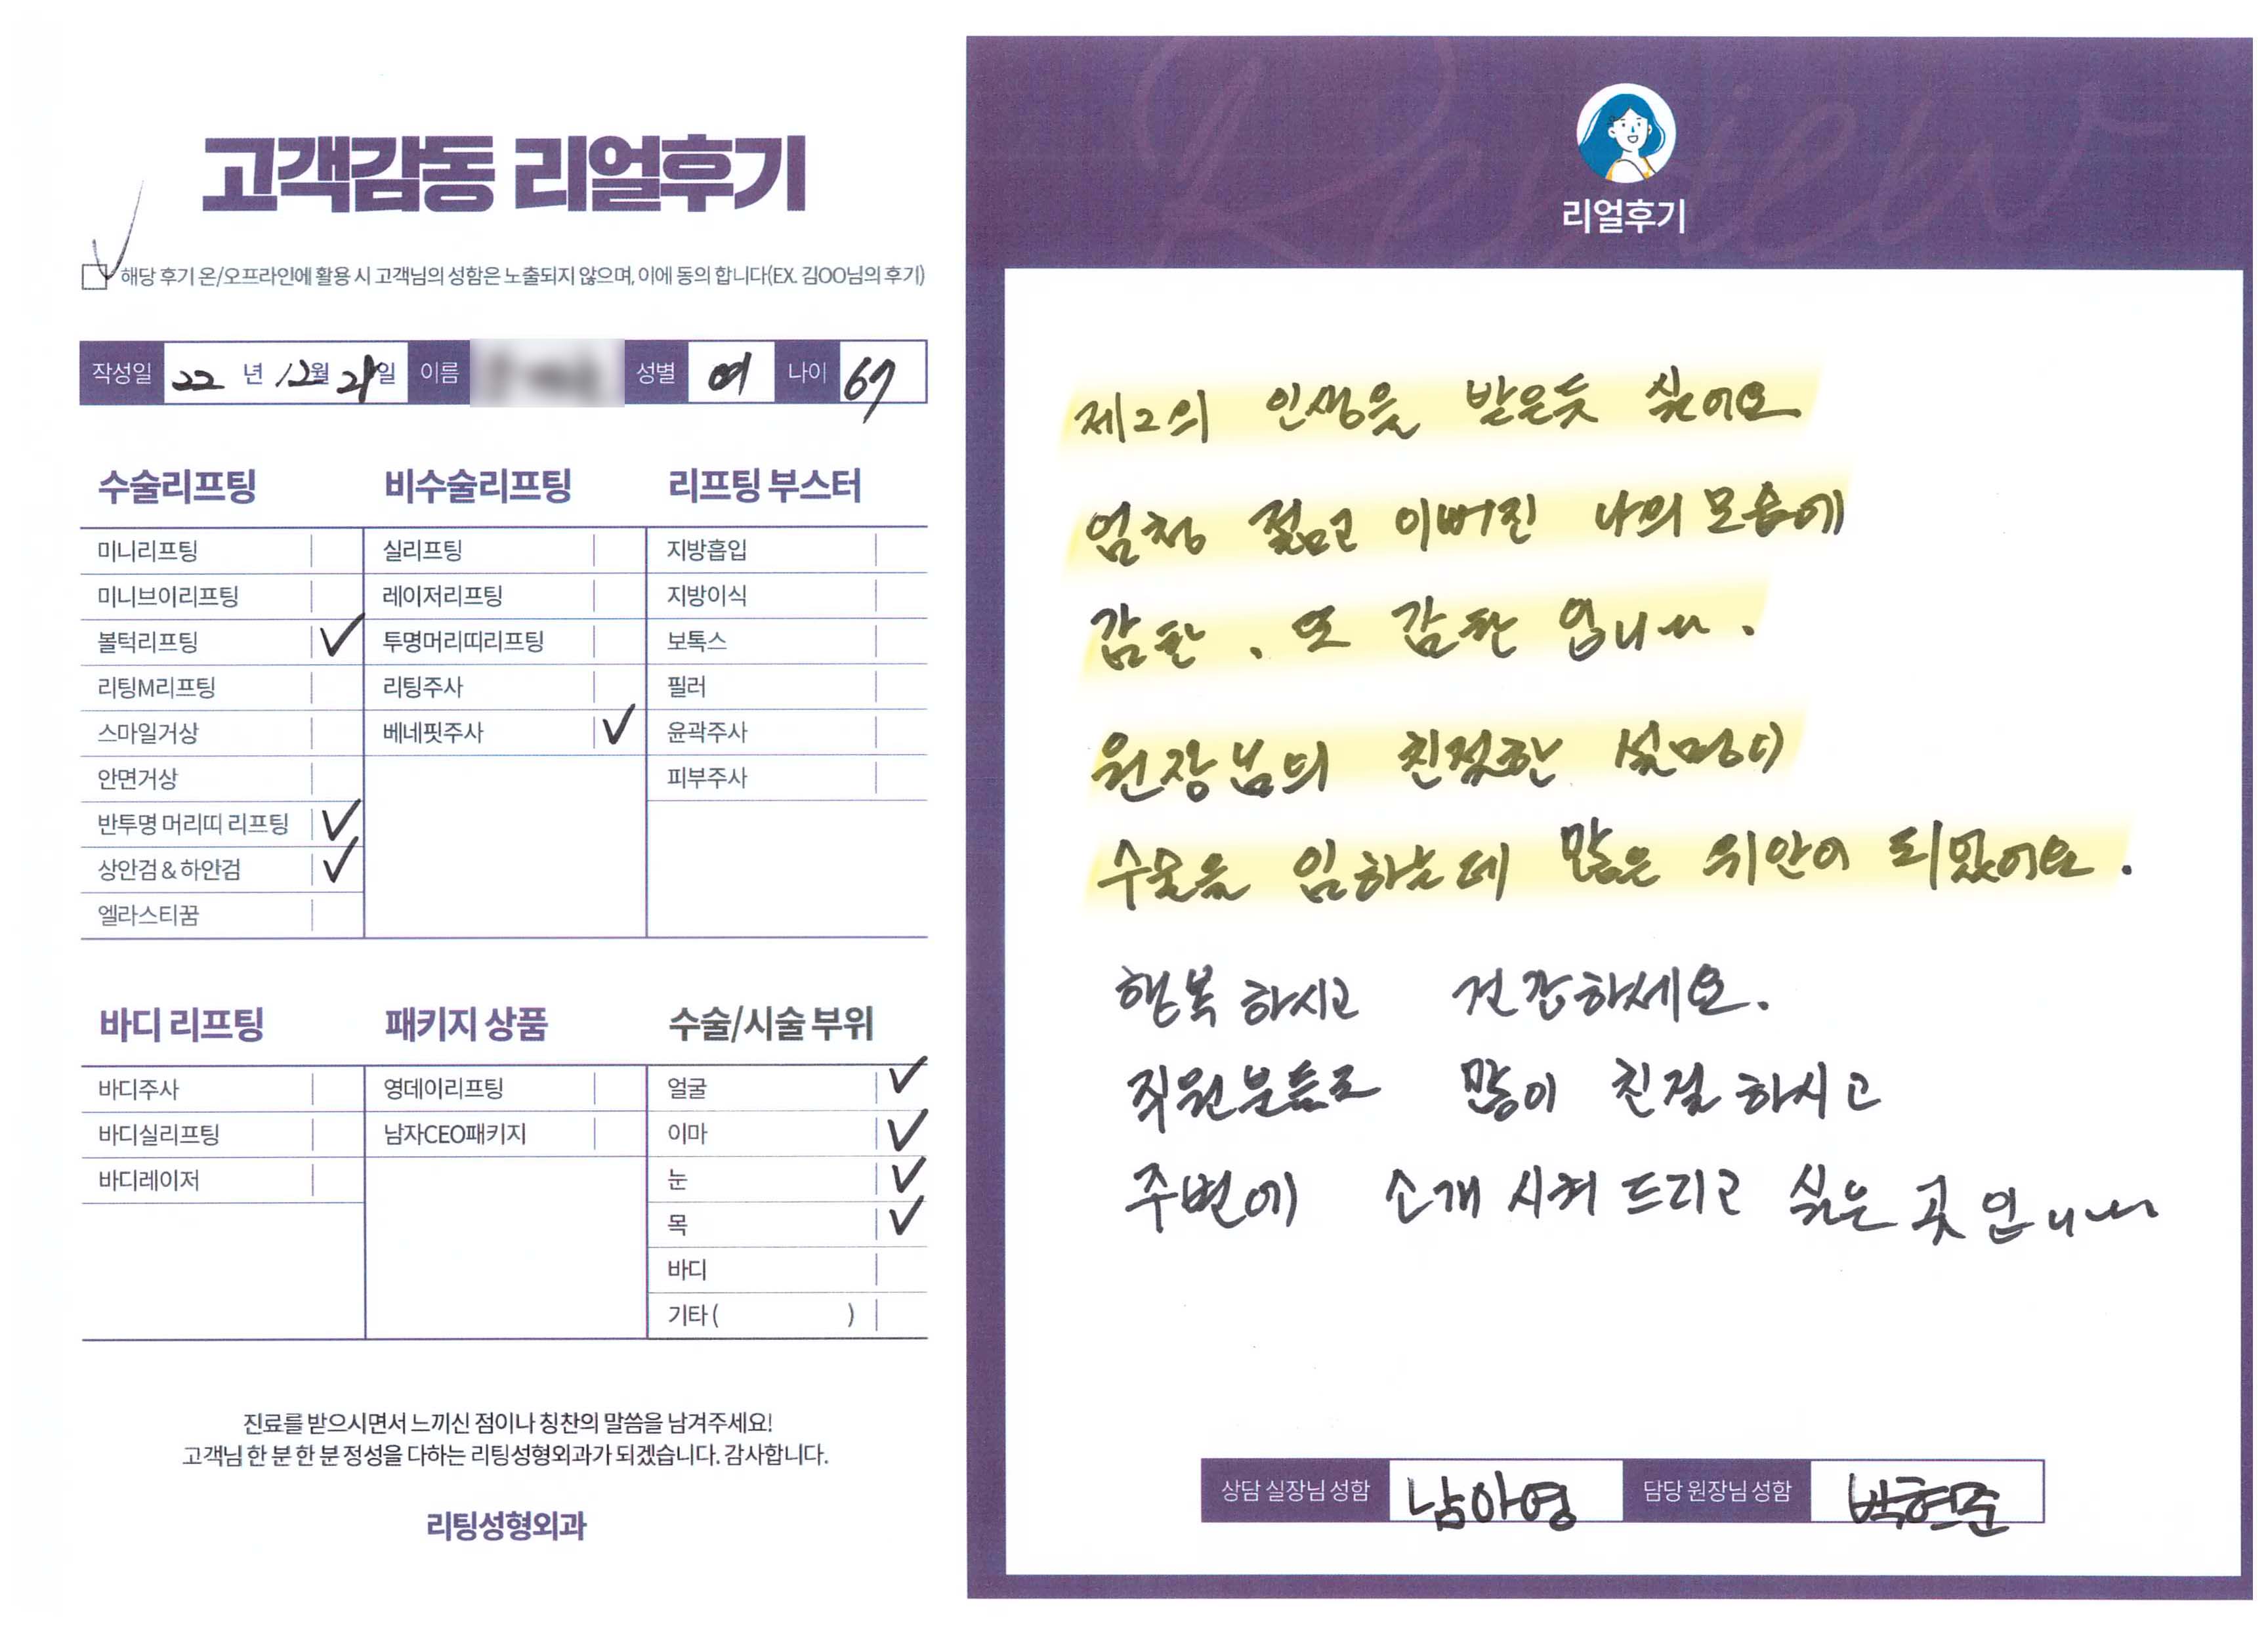 고객감동 리얼후기
해당 후기 온/오프라인에 활용 시 고객님의 성함은 노출되지 않으며, 이에 동의 합니다(EX. 김OO님의 후기)
작성일 22 년 12월 21일 이름 성별 여 나이 67
수술리프팅
미니리프팅
미니브이리프팅
볼턱리프팅
리팅M리프팅
스마일거상
안면거상
반투명 머리띠 리프팅
상안검 & 하안검
엘라스티꿈
비수술리프팅
실리프팅
레이저리프팅
투명머리띠리프팅
리팅주사
베네핏주사
리프팅 부스터
지방흡입
지방이식
보톡스
필러
윤곽주사
피부주사
바디 리프팅
바디주사
바디실리프팅
바디레이저
패키지 상품
영데이리프팅
남자CEO패키지
수술/시술 부위
얼굴
이마
눈
목
바디
기타 ( )
진료를 받으시면서 느끼신 점이나 칭찬의 말씀을 남겨주세요!
고객님 한 분 한 분 정성을 다하는 리팅성형외과가 되겠습니다. 감사합니다.
리팅성형외과
Review
리얼후기
제2의 인생을 받은듯 싶어요
엄청 젊고 이뻐진 나의 모습에
감탄 . 또 감탄 입니다 .
원장님의 친절한 설명이
수술을 임하는데 많은 위안이 되었어요 .
행복 하시고 건강하세요.
직원분들도 많이 친절 하시고
주변에 소개 시켜 드리고 싶은 곳 입니다
상담 실장님 성함 남아영 담당 원장님 성함 박현준